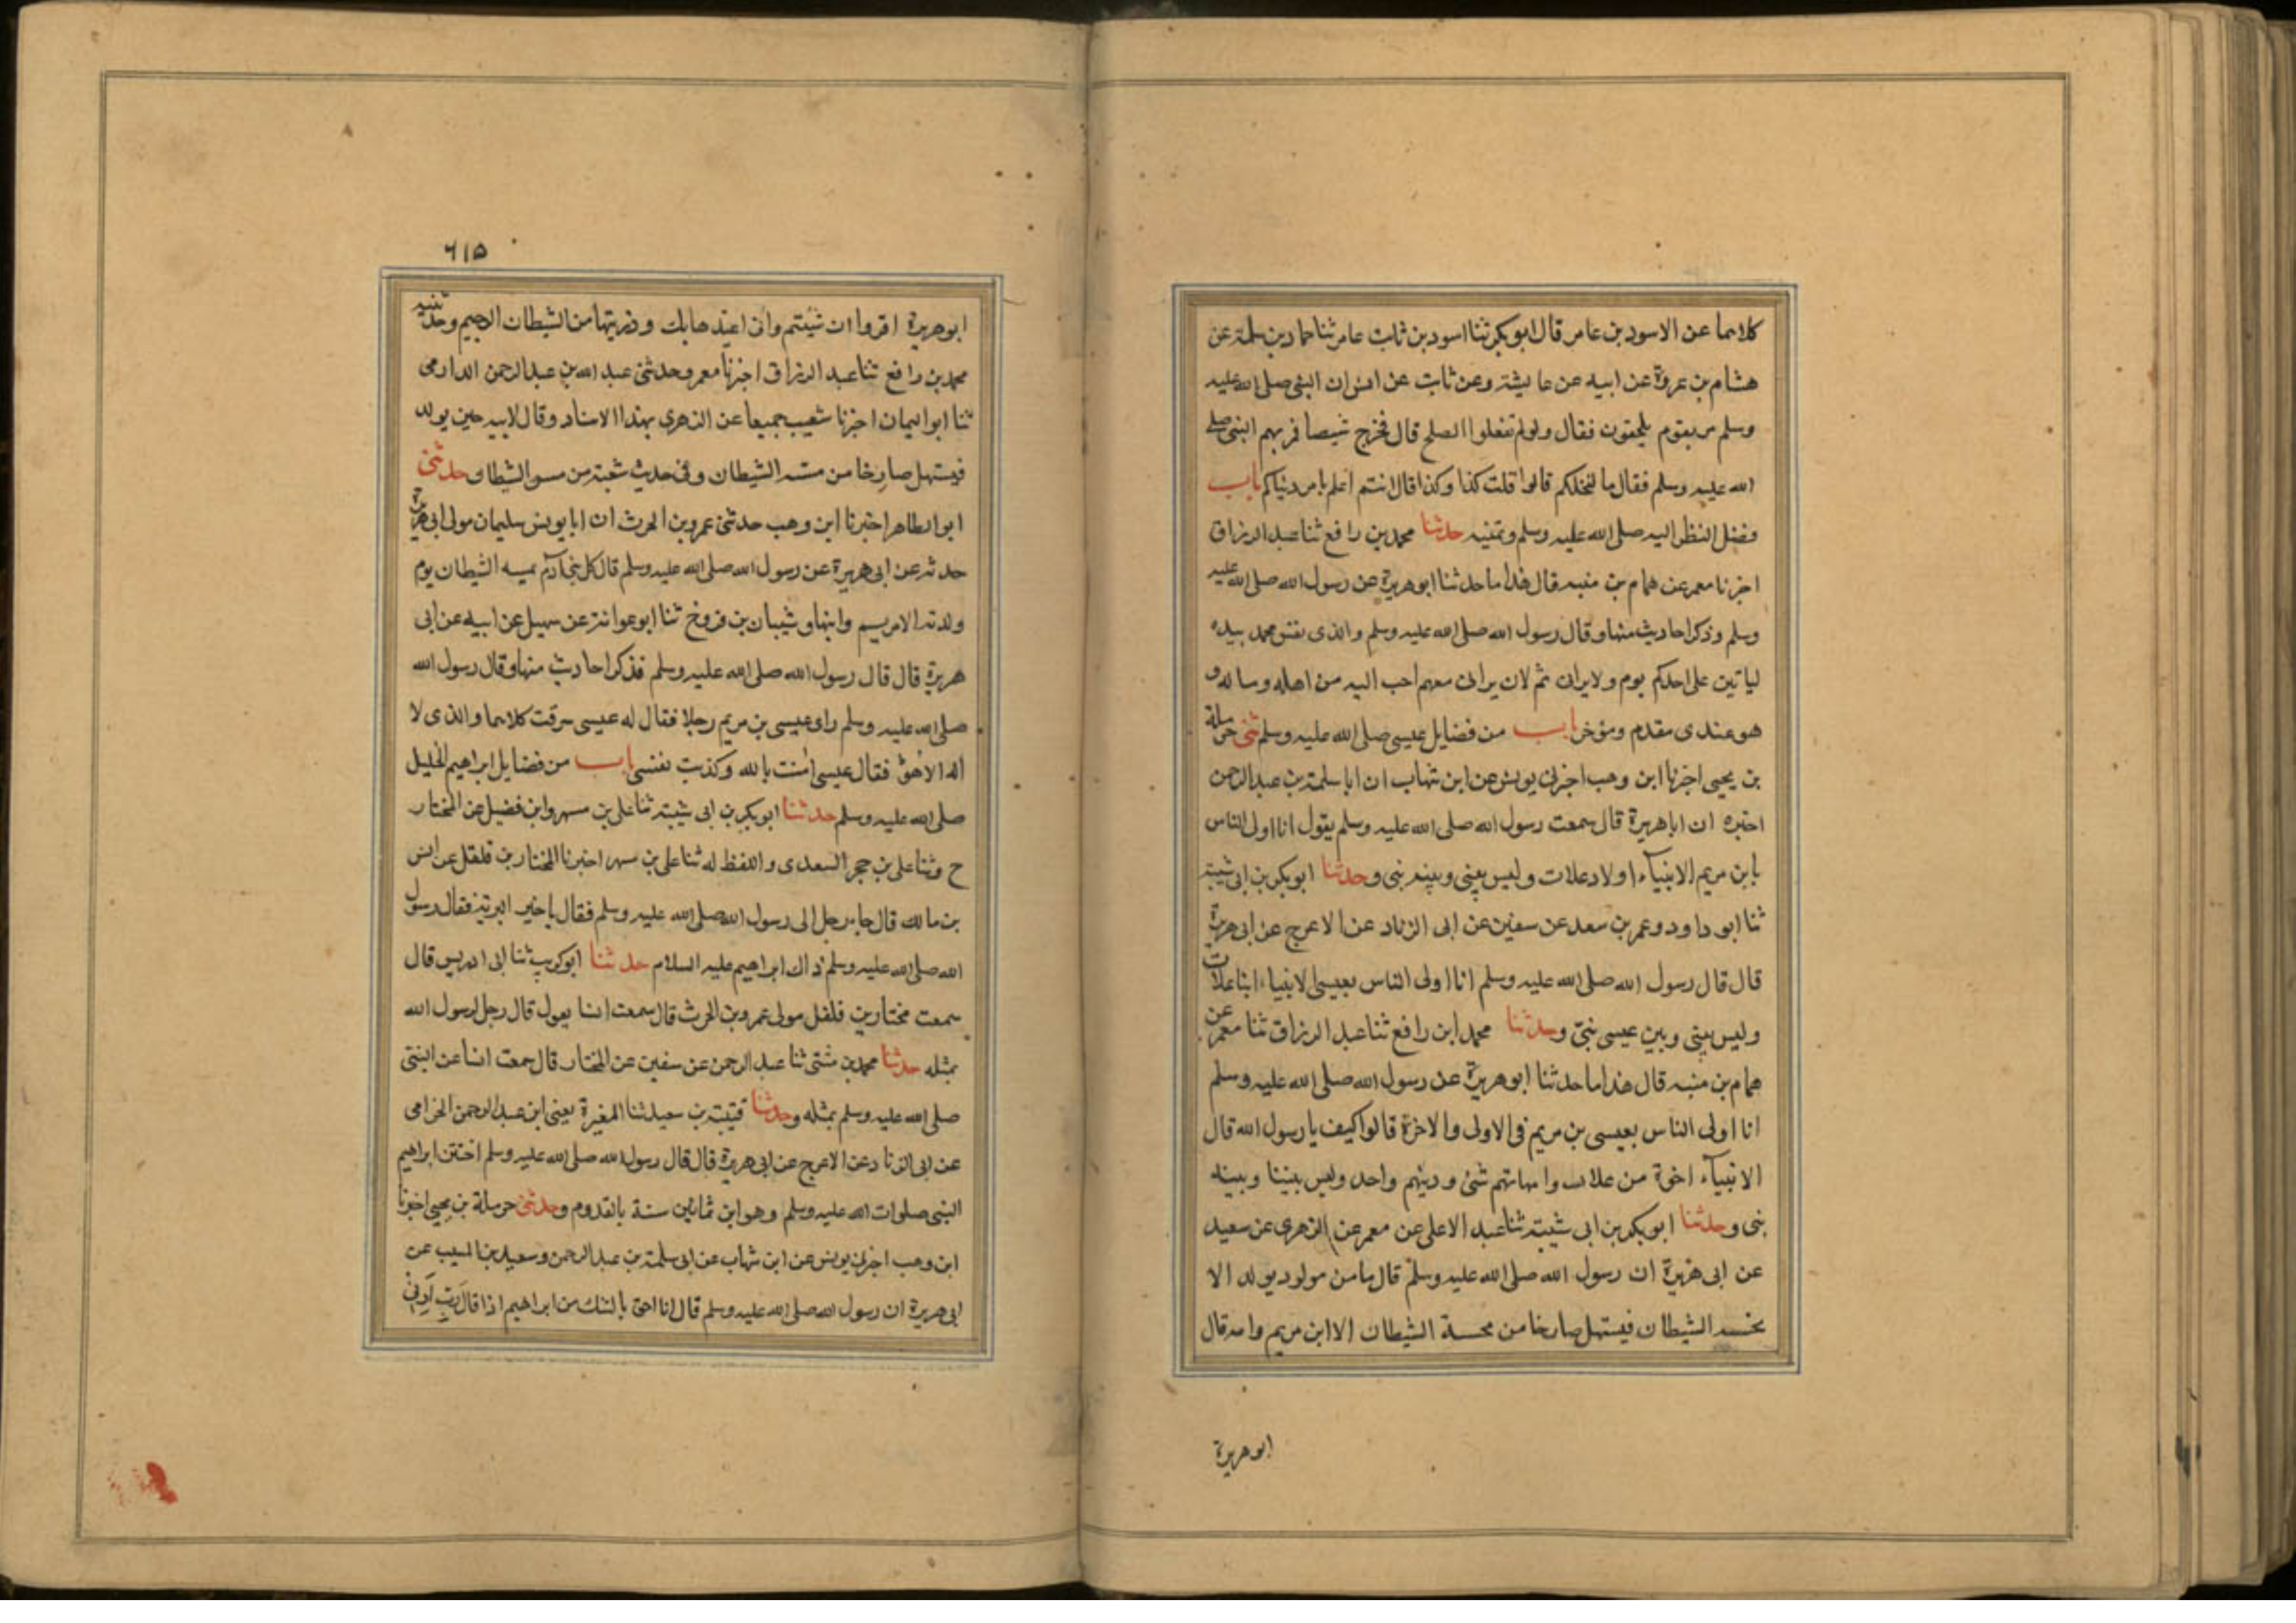 كلاهما عن الاسود بن عامر قال ابو بكر ثنا اسود بن ثابت عامر ثنا حماد بن سلمة عن
هشام بن عروة عن ابيه عن عايشة وعن ثابت عن انس ان النبي صلى الله عليه
وسلم مر بقوم يلحقون فقال ولو لم تفعلوا الصلح قال فخرج شيصا فمر بهم النبي صلى
الله عليه وسلم فقال ما لنخلكم قالوا قلت كذا وكذا قال انتم اعلم بامر دنياكم باب
فضل النظر اليه صلى الله عليه وسلم وتمنيه حدثنا محمد بن رافع ثنا عبد الرزاق
اخبرنا معمر عن همام بن منبه قال هذا ما حدثنا ابو هريرة عن رسول الله صلى الله عليه
وسلم وذكر احاديث منها وقال رسول الله صلى الله عليه وسلم والذى نفس محمد بيده
لياتين على احدكم يوم ولا يرانى ثم لان يرانى معهم احب اليه من اهله وماله و
هو عندى مقدم ومؤخر باب من فضايل عيسى صلى الله عليه وسلم ثنى حرملة
بن يحيى اخبرنا ابن وهب اخبرنى يونس عن ابن شهاب ان ابا سلمة بن عبد الرحمن
اخبره ان ابا هريرة قال سمعت رسول الله صلى الله عليه وسلم يقول انا اولى الناس
بابن مريم الانبياء اولاد علات وليس بينى وبينه نبى وحدثنا ابو بكر بن ابى شيبة
ثنا ابو داود وعمر بن سعد عن سفين عن ابى الزناد عن الاعرج عن ابى هريرة
قال قال رسول الله صلى الله عليه وسلم انا اولى الناس بعيسى الانبياء ابنا علات
وليس بينى وبين عيسى نبى وحدثنا محمد ابن رافع ثنا عبد الرزاق ثنا معمر عن
همام بن منبه قال هذا ما حدثنا ابو هريرة عن رسول الله صلى الله عليه وسلم
انا اولى الناس بعيسى بن مريم فى الاولى والاخرة قالوا كيف يا رسول الله قال
الانبياء اخوة من علات وامهاتهم شتى ودينهم واحد وليس بيننا وبينه
نبى وحدثنا ابو بكر بن ابى شيبة ثنا عبد الاعلى عن معمر عن الزهرى عن سعيد
عن ابى هريرة ان رسول الله صلى الله عليه وسلم قال ما من مولود يولد الا
نخسه الشيطان فيستهل صارخا من نخسة الشيطان الا ابن مريم وامه قال
ابو هريرة
٦١٥
ابو هريرة اقروا ان شيئتم وانى اعيذها بك وذريتها من الشيطان الرجيم وحدثنيه
محمد بن رافع ثنا عبد الرزاق اخبرنا معمر وحدثنى عبد الله بن عبد الرحمن الدارمى
ثنا ابو اليمان اخبرنا شعيب جميعا عن الزهرى بهذا الاسناد وقال لابيه حين يولد
فيستهل صارخا من مسه الشيطان وفى حديث شعبة من مس الشيطان حدثنى
ابو الطاهر اخبرنا ابن وهب حدثنى عمرو بن الحرث ان ابا يونس سليمان مولى ابى هريرة
حدثه عن ابى هريرة عن رسول الله صلى الله عليه وسلم قال كل بنى آدم يمسه الشيطان يوم
ولدته الا مريم وابنها و شيبان بن فروخ ثنا ابو عوانة عن سهيل عن ابيه عن ابى
هريرة قال قال رسول الله صلى الله عليه وسلم فذكر احاديث منها وقال رسول الله
صلى الله عليه وسلم راى عيسى بن مريم رجلا فقال له عيسى سرقت كلاهما والذى لا
اله الا هو فقال عيسى آمنت بالله وكذبت نفسى باب من فضايل ابراهيم الخليل
صلى الله عليه وسلم حدثنا ابو بكر بن ابى شيبة ثنا على بن مسهر وابن فضيل عن المختار
ح وثنا على بن حجر السعدى واللفظ له ثنا على بن مسهر اخبرنا المختار بن فلفل عن انس
بن مالك قال جاء رجل الى رسول الله صلى الله عليه وسلم فقال يا خير البرية فقال رسول
الله صلى الله عليه وسلم ذاك ابراهيم عليه السلام حدثنا ابو كريب ثنا ابى ادريس قال
سمعت مختار بن فلفل مولى عمرو بن الحرث قال سمعت انسا يقول قال رجل لرسول الله
بمثله حدثنا محمد بن مثنى ثنا عبد الرحمن عن سفين عن المختار قال سمعت انسا عن النبى
صلى الله عليه وسلم بمثله وحدثنا قتيبة بن سعيد ثنا المغيرة يعنى ابن عبد الرحمن الحزامى
عن ابى الزناد عن الاعرج عن ابى هريرة قال قال رسول الله صلى الله عليه وسلم اختتن ابراهيم
النبى صلوات الله عليه وسلم وهو ابن ثمانين سنة بالقدوم وحدثنى حرملة بن يحيى اخبرنا
ابن وهب اخبرنى يونس عن ابن شهاب عن ابى سلمة بن عبد الرحمن وسعيد بن المسيب عن
ابى هريرة ان رسول الله صلى الله عليه وسلم قال انا احق بالشك من ابراهيم اذا قال رَبِّ أَرِنِى